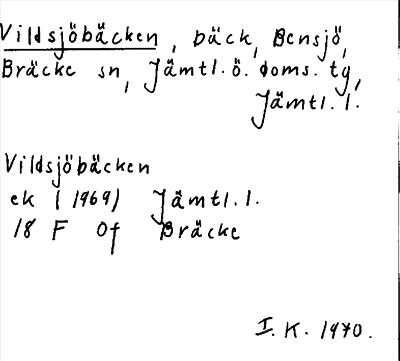 Vildsjöbäcken, bäck, Bensjö,
Bräcke sn, Jämtl. ö. doms. tg,
Jämtl. l.
Vildsjöbäcken
ek (1969) Jämtl. l.
18 F Of Bräcke
I. K. 1970.